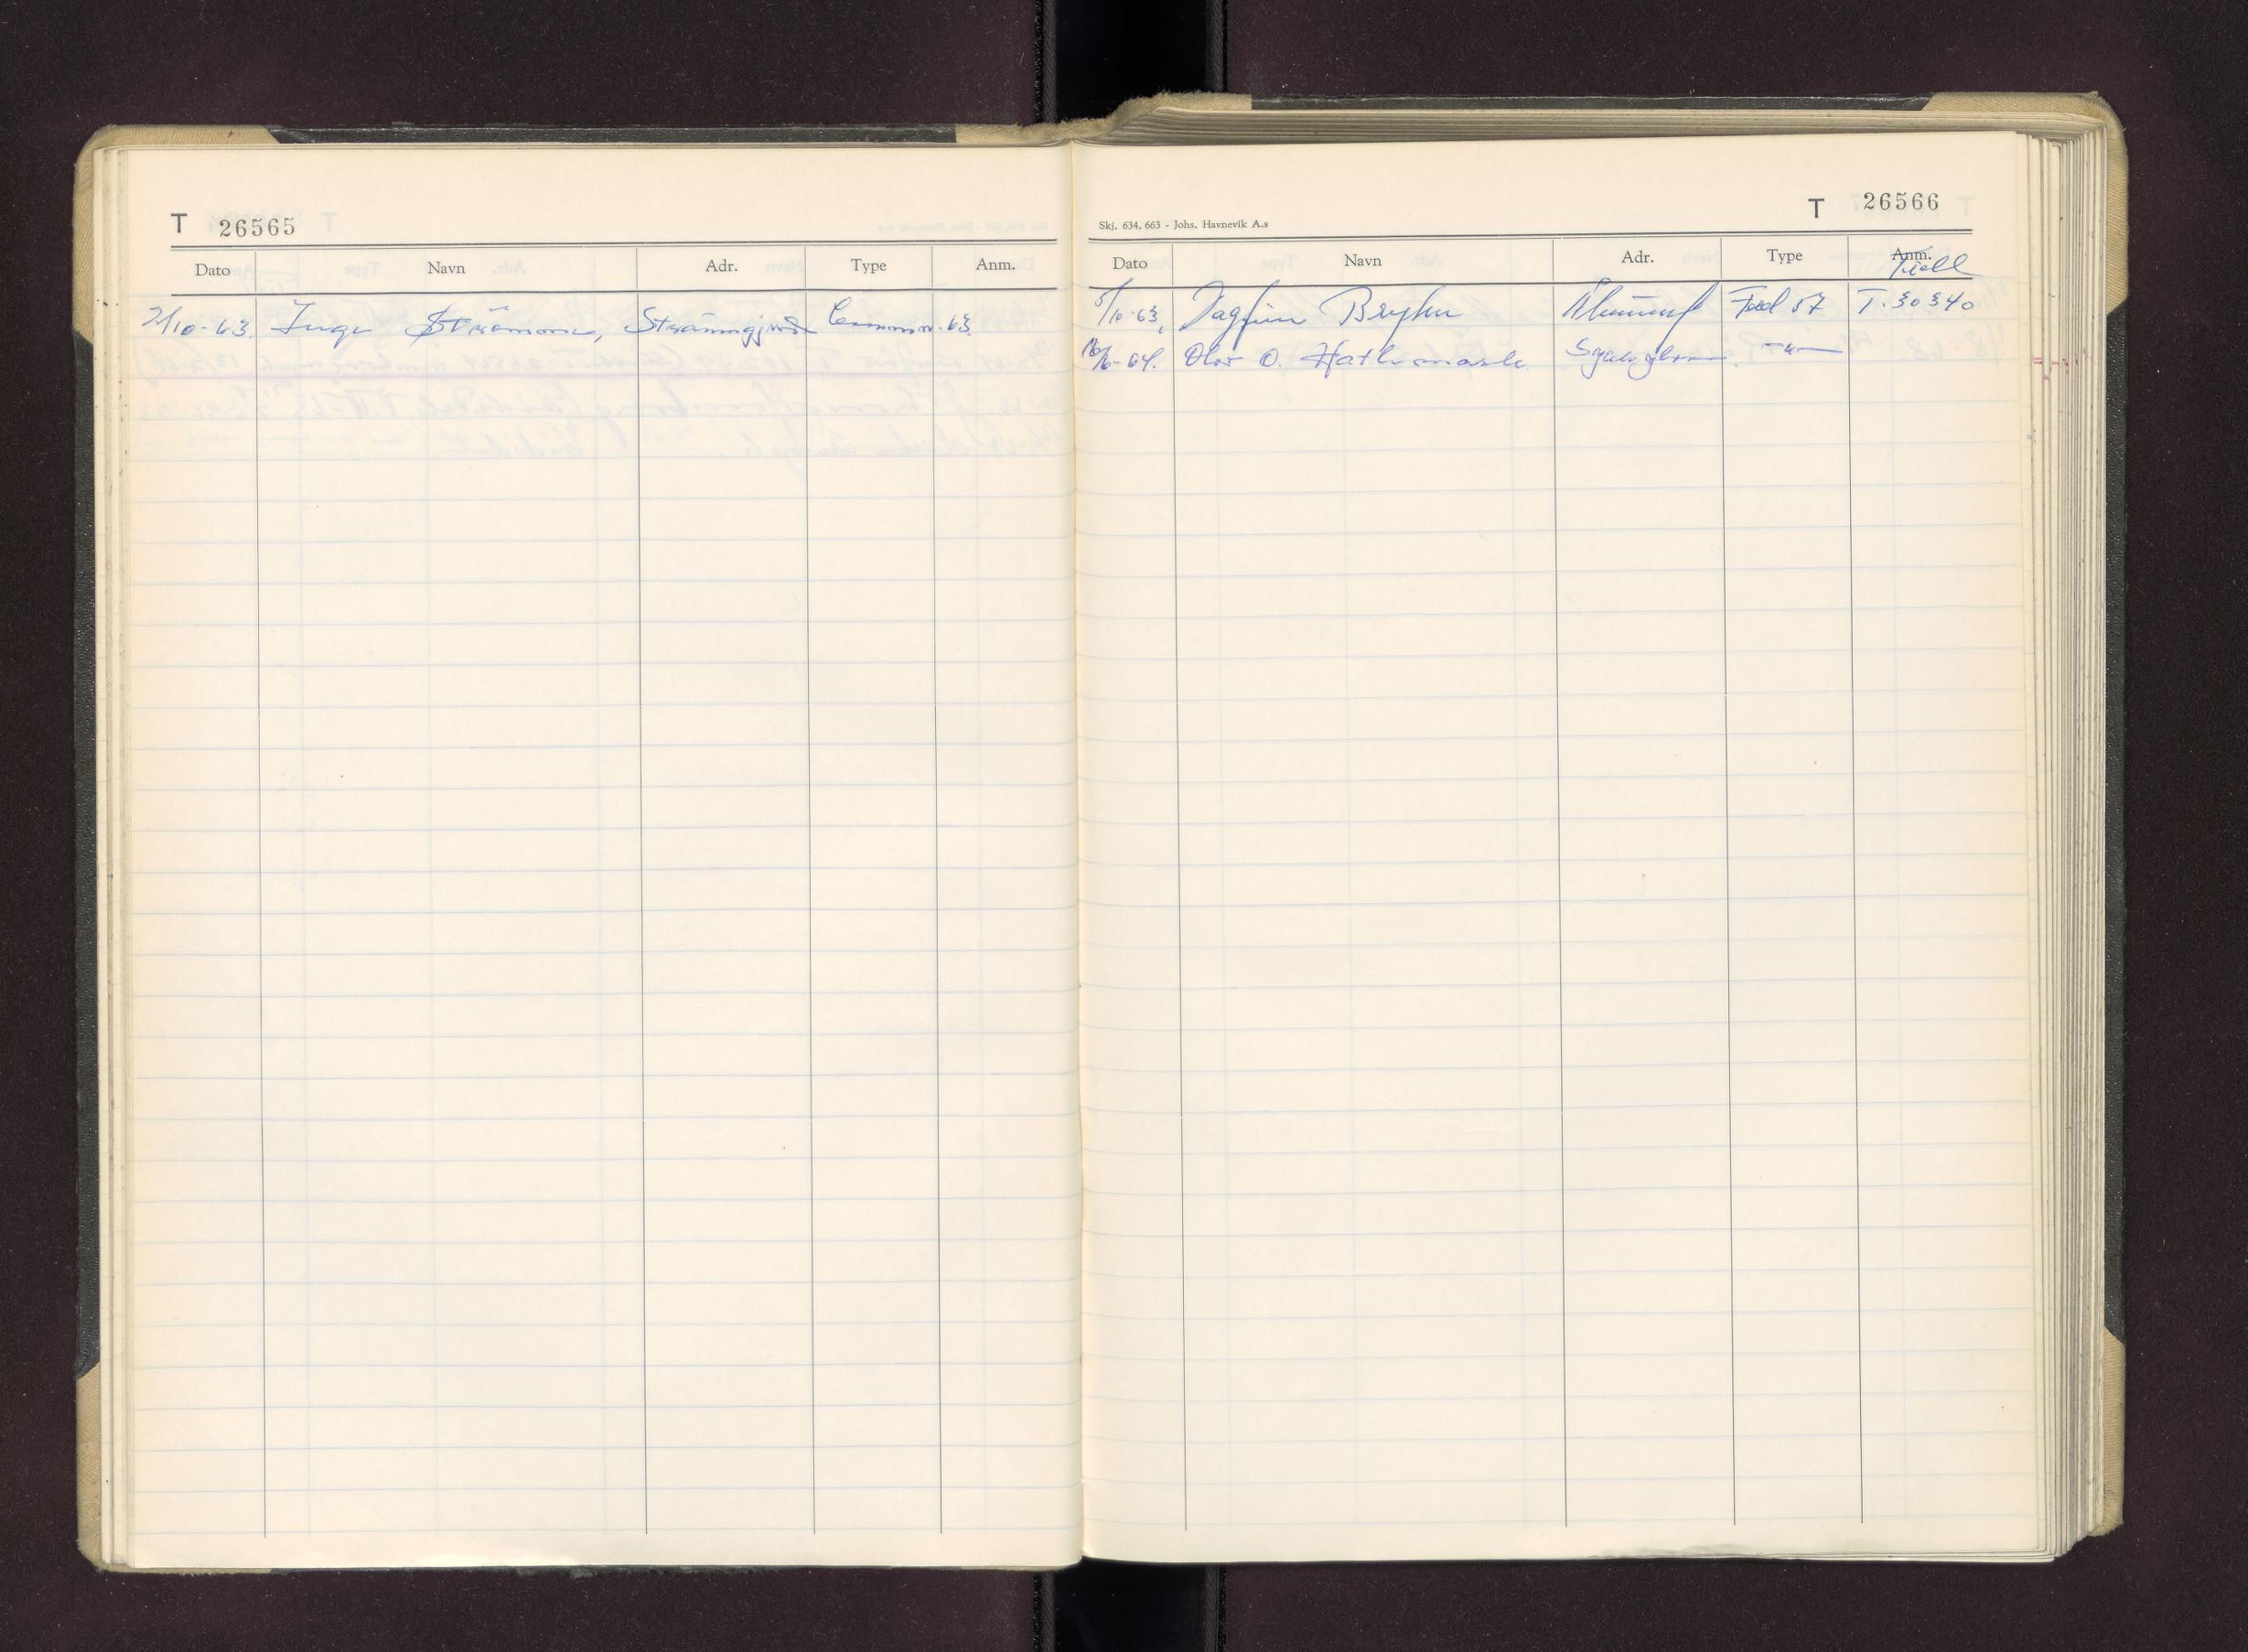 T 26565
Dato Navn Adr. Type Anm.
2/10-63. Inge Strömme, Consul 63
Skj. 634, 663 - Johs. Havnevik A.s
T 26566
Dato Navn Adr. Type Anm.
5/10-63, Dagfinn Bryhn Ford 57 T. 30340
16/6-64. Olav O. Hatlemark -"-